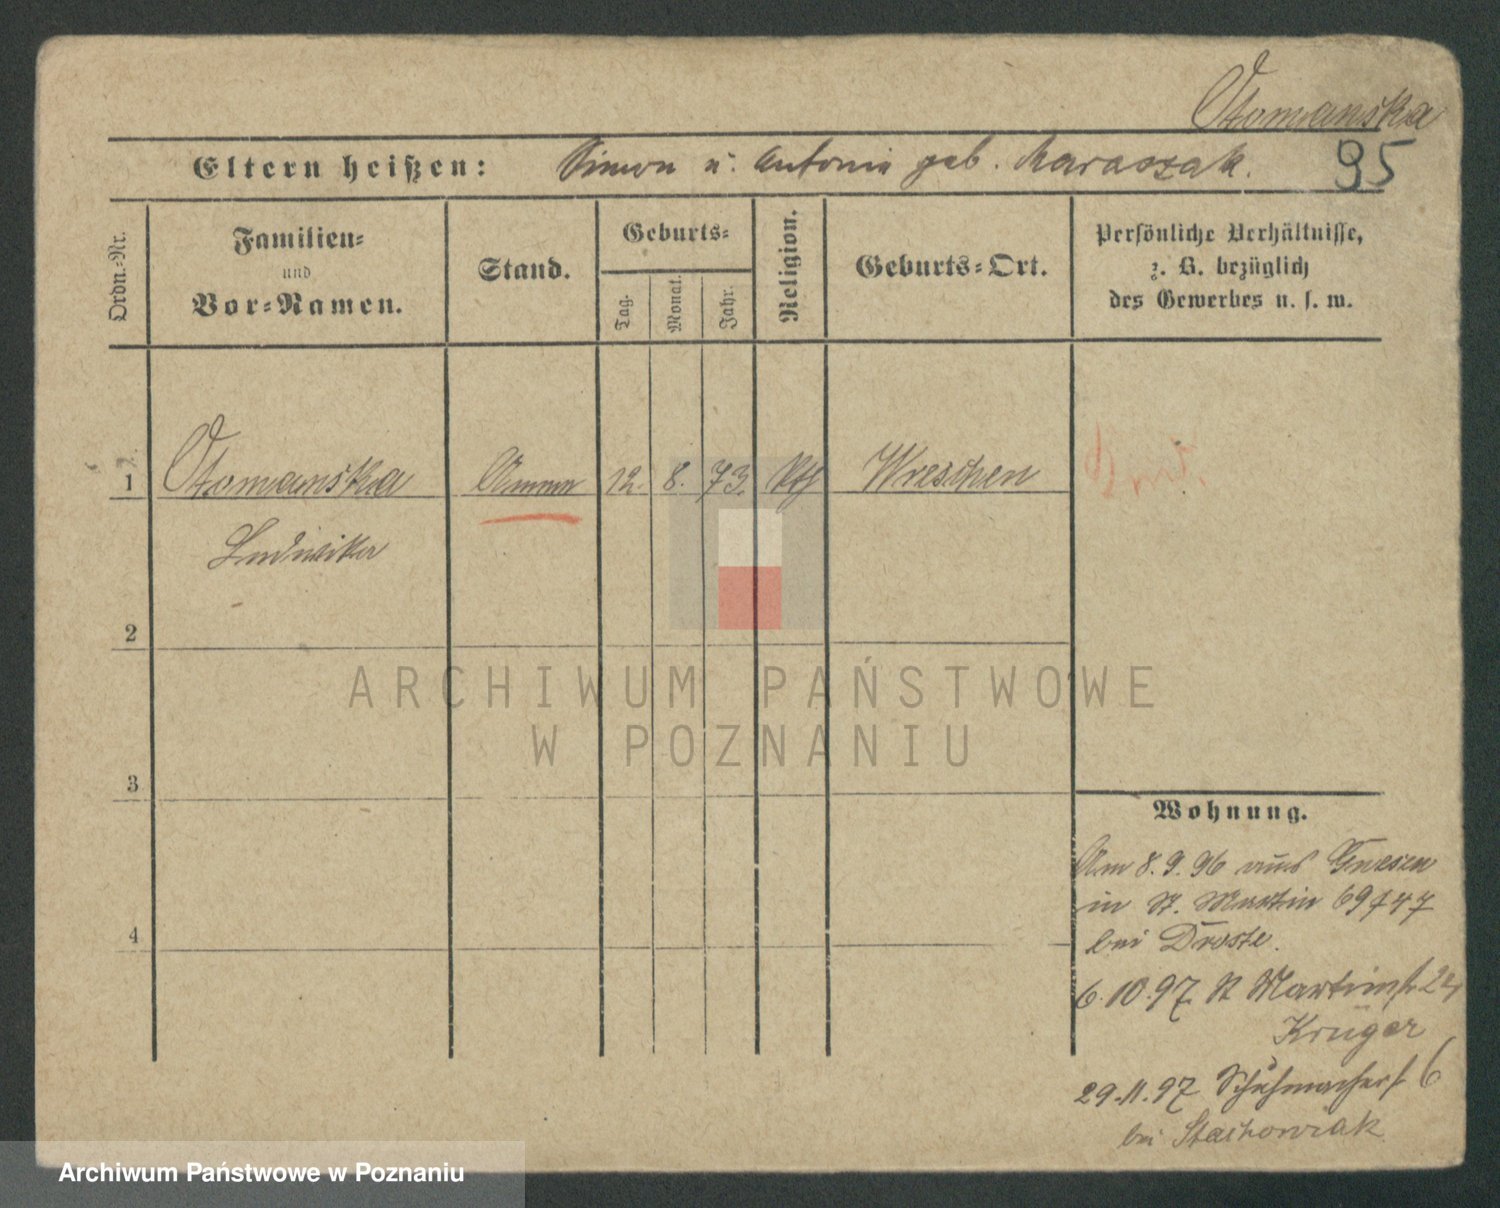 Otomanska
95
Eltern heißen: Simon u. Antonie geb. Maraszak.
Ordn.-Nr.
Familien-
und
Vor-Namen.
Stand.
Geburts-
Tag.
Monat.
Jahr.
Religion.
Geburts-Ort.
Persönliche Verhältnisse,
z. B. bezüglich
des Gewerbes u. s. w.
1 Otomanska Amme 12. 8. 73. Kth Wreschen
Ludwika
2
ARCHIWUM PAŃSTWOWE
W POZNANIU
3
4
Wohnung.
Am 8. 9. 96 aus Gnesen
in St. Martin 69
bei Droste.
6.10.97 St Martinst
Krüger
29.11.97 Schuhmacherst 6
bei Stachowiak
Archiwum Państwowe w Poznaniu